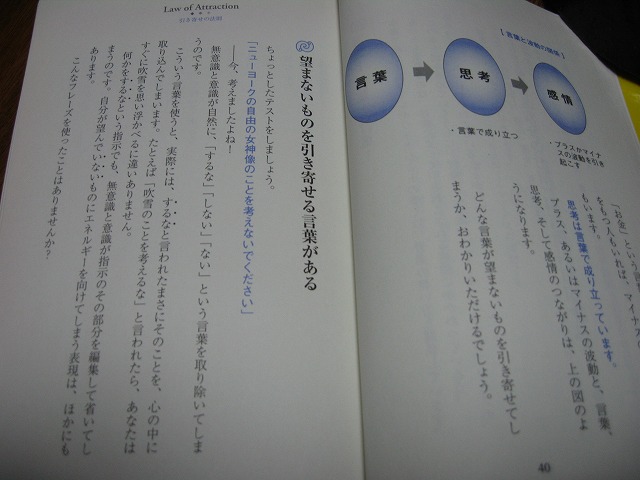 【言葉と波動の関係】
言葉
思考
感情
・言葉で成り立つ
・プラスかマイナ
スの波動を引き
起こす
「お金」という言
をもつ人もいれば、マイナス
もいます。
思考は言葉で成り立っています。
プラス、あるいはマイナスの波動と、言葉、
思考、そして感情のつながりは、上の図のよ
うになります。
どんな言葉が望まないものを引き寄せてし
まうか、おわかりいただけるでしょう。
40
Law of Attraction
引き寄せの法則
望まないものを引き寄せる言葉がある
ちょっとしたテストをしましょう。
「ニューヨークの自由の女神像のことを考えないでください」
――今、考えましたよね！
無意識と意識が自然に、「するな」「しない」「ない」という言葉を取り除いてしま
うのです。
こういう言葉を使うと、実際には、するなと言われたまさにそのことを、心の中に
取り込んでしまいます。たとえば「吹雪のことを考えるな」と言われたら、あなたは
すぐに吹雪を思い浮かべるに違いありません。
何かをするなという指示でも、無意識と意識が指示のその部分を編集して省いてし
まうのです。自分が望んでいないものにエネルギーを向けてしまう表現は、ほかにも
あります。
こんなフレーズを使ったことはありませんか？